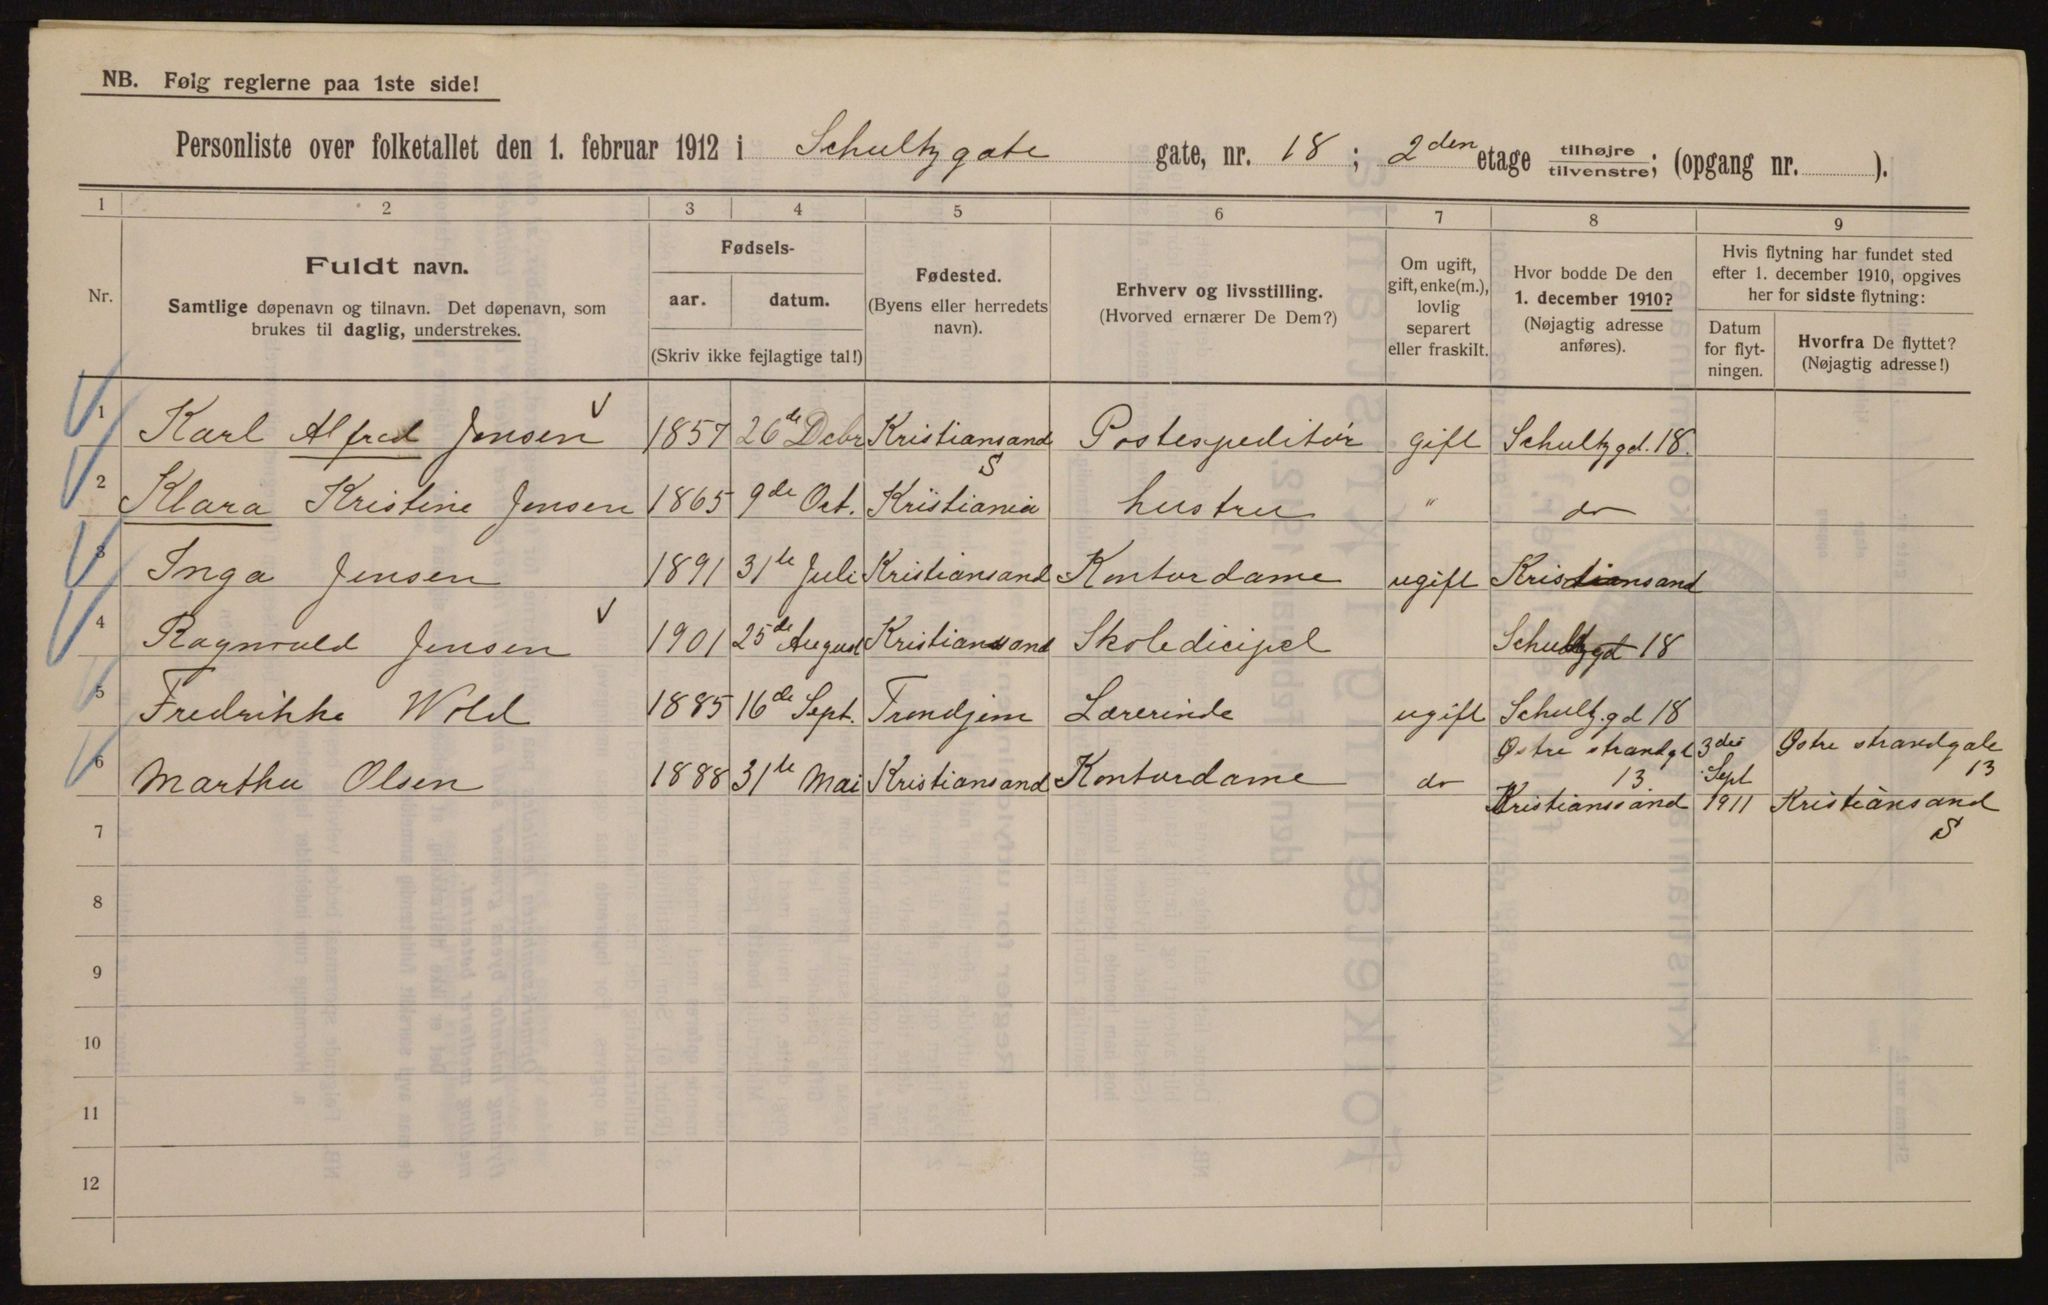 NB. Følg reglerne paa 1ste side!
Personliste over folketallet den 1. februar 1912 i Schultzgate gate, nr. 18; 2den etage tilhøjre tilvenstre; (opgang nr. ).
1 2 3 4 5 6 7 8 9
Nr.
Fuldt navn.
Samtlige døpenavn og tilnavn. Det døpenavn, som
brukes til daglig, understrekes.
Fødsels-
aar. datum.
(Skriv ikke fejlagtige tal!)
Fødested.
(Byens eller herredets
navn).
Erhverv og livsstilling.
(Hvorved ernærer De Dem?)
Om ugift,
gift, enke(m.),
lovlig
separert
eller fraskilt.
Hvor bodde De den
1. december 1910?
(Nøjagtig adresse
anføres).
Hvis flytning har fundet sted
efter 1. december 1910, opgives
her for sidste flytning:
Datum
for flyt-
ningen.
Hvorfra De flyttet?
(Nøjagtig adresse!)
1 Karl Alfred Jensen 1857 26de Debr Kristiansand S Postexpeditør gift Schultzgd. 18.
2 Klara Kristine Jensen 1865 9de Oct. Kristiania hustru " do
3 Inga Jensen 1891 31te Juli Kristiansand Kontordame ugift Kristiansand
4 Ragnvald Jensen 1901 25de August Kristiansand Skoledicipel Schultzgd 18
5 Fredrikke Wold 1885 16de Sept. Trondjem Lærerinde ugift Schultz.gd 18
6 Martha Olsen 1888 31te Mai Kristiansand Kontordame do Østre strandgt 13 Kristianssand 3die Sept 1911 Østre strandgate 13 Kristiansand S
7
8
9
10
11
12